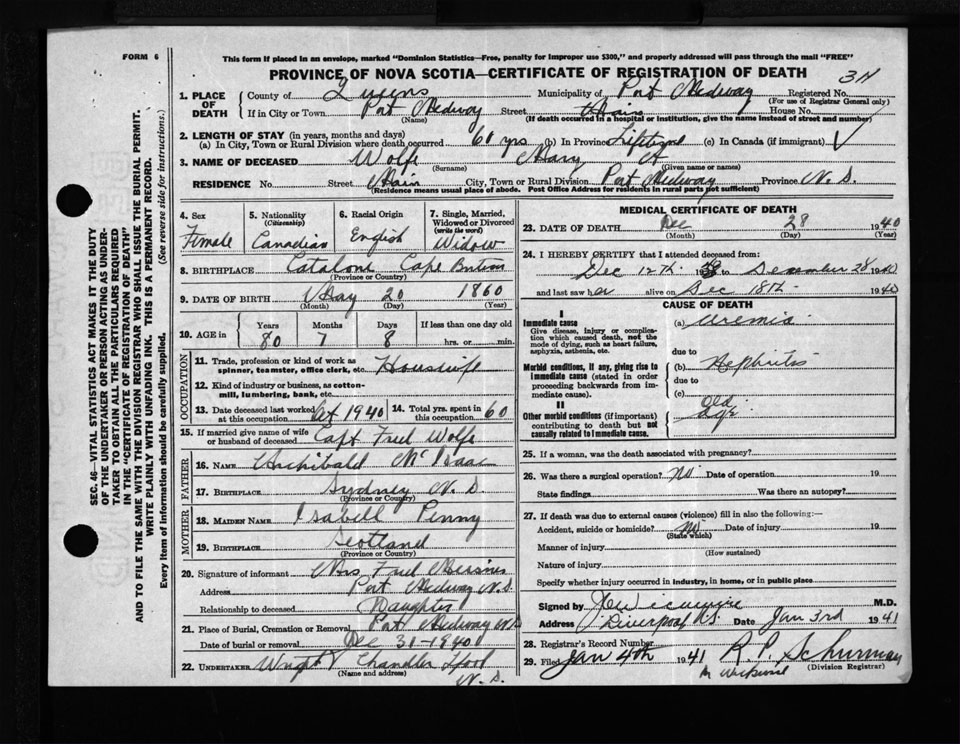 FORM 6
This form if placed in an envelope, marked "Dominion Statistics—Free, penalty for improper use $300," and properly addressed will pass through the mail "FREE"
PROVINCE OF NOVA SCOTIA—CERTIFICATE OF REGISTRATION OF DEATH
1. PLACE OF DEATH County of Queens Municipality of Port Medway Registered No.
(For use of Registrar General only)
If in City or Town Port Medway Street Main House No.
(Name) (If death occurred in a hospital or institution, give the name instead of street and number)
2. LENGTH OF STAY (in years, months and days)
(a) In City, Town or Rural Division where death occurred 60 yrs (b) In Province Lifetime (c) In Canada (if immigrant)
3. NAME OF DECEASED Wolfe Mary A
(Surname) (Given name or names)
RESIDENCE No. Street Main City, Town or Rural Division Port Medway Province N.S.
(Residence means usual place of abode. Post Office Address for residents in rural parts not sufficient)
4. Sex Female
5. Nationality (Citizenship) Canadian
6. Racial Origin English
7. Single, Married, Widowed or Divorced (write the word) Widow
8. BIRTHPLACE Catalone Cape Breton
(Province or Country)
9. DATE OF BIRTH May 20 1860
(Month) (Day) (Year)
10. AGE in Years Months Days If less than one day old
80 7 8 hrs. or min.
OCCUPATION
11. Trade, profession or kind of work as spinner, teamster, office clerk, etc. Housewife
12. Kind of industry or business, as cotton-mill, lumbering, bank, etc.
13. Date deceased last worked at this occupation Oct 1940 14. Total yrs. spent in this occupation 60
15. If married give name of wife or husband of deceased Capt Fred Wolfe
FATHER
16. NAME Archibald McIsaac
17. BIRTHPLACE Sydney N.S.
(Province or Country)
MOTHER
18. MAIDEN NAME Isabell Penny
19. BIRTHPLACE Scotland
(Province or Country)
20. Signature of informant Mrs Fred
Address Port Medway N.S.
Relationship to deceased Daughter
21. Place of Burial, Cremation or Removal Port Medway N.S.
Date of burial or removal Dec 31-1940
22. UNDERTAKER Wright Chandler
(Name and address)
N.S.
MEDICAL CERTIFICATE OF DEATH
23. DATE OF DEATH Dec 28 1940
(Month) (Day) (Year)
24. I HEREBY CERTIFY that I attended deceased from:
Dec 12th to December 28 1940
and last saw her alive on Dec 18th 1940
CAUSE OF DEATH
I
Immediate cause (a) Uremia
Give disease, injury or complication which caused death, not the mode of dying, such as heart failure, asphyxia, asthenia, etc.
due to
Morbid conditions, if any, giving rise to immediate cause (stated in order proceeding backwards from immediate cause). (b) Nephritis
due to
(c)
II
Other morbid conditions (if important) contributing to death but not causally related to immediate cause. Old Age
25. If a woman, was the death associated with pregnancy?
26. Was there a surgical operation? No Date of operation 19
State findings Was there an autopsy?
27. If death was due to external causes (violence) fill in also the following:—
Accident, suicide or homicide? No Date of injury 19
(State which)
Manner of injury
(How sustained)
Nature of injury
Specify whether injury occurred in industry, in home, or in public place
Signed by M.D.
Address Liverpool N.S. Date Jan 3rd 1941
28. Registrar's Record Number
29. Filed Jan 4th 1941 R. P. Schurman
(Division Registrar)
SEC. 46—VITAL STATISTICS ACT MAKES IT THE DUTY OF THE UNDERTAKER OR PERSON ACTING AS UNDERTAKER TO OBTAIN ALL THE PARTICULARS REQUIRED IN THE "CERTIFICATE OF REGISTRATION OF DEATH"
AND TO FILE THE SAME WITH THE DIVISION REGISTRAR WHO SHALL ISSUE THE BURIAL PERMIT.
WRITE PLAINLY WITH UNFADING INK. THIS IS A PERMANENT RECORD.
Every item of information should be carefully supplied. (See reverse side for instructions.)